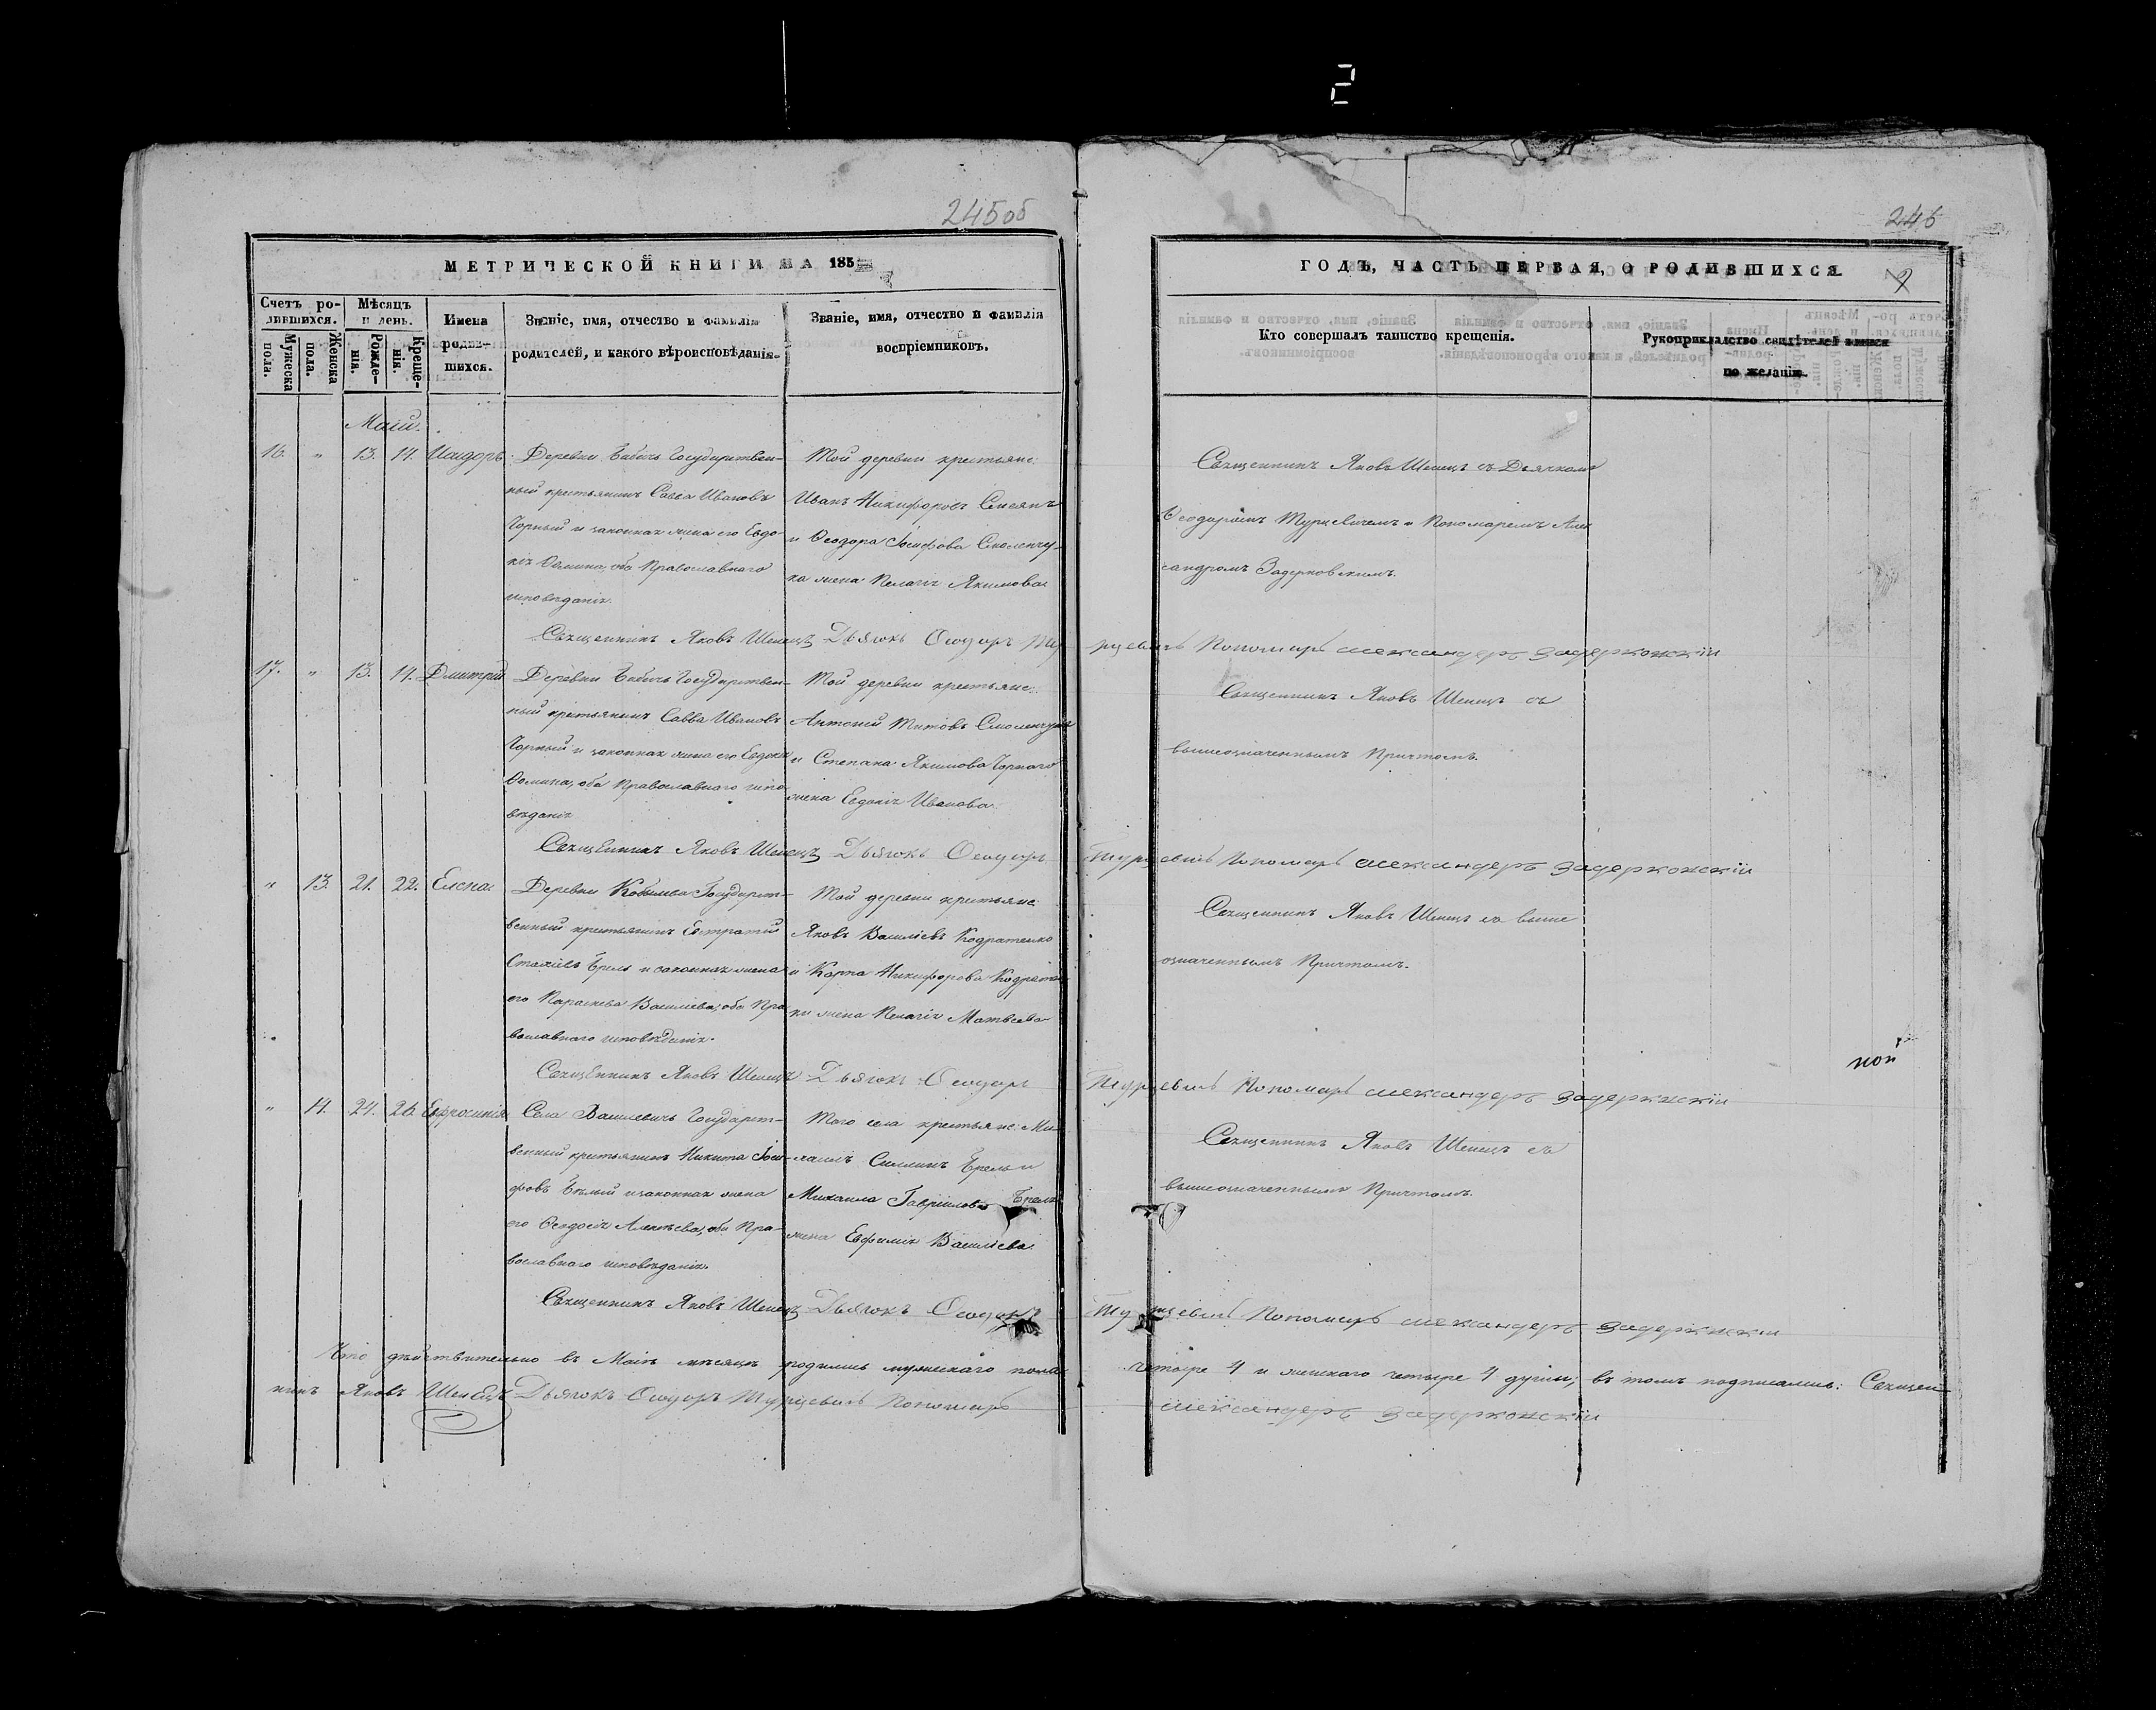 2
245об
246
МЕТРИЧЕСКОЙ КНИГИ НА 185
ГОДЪ, ЧАСТЬ ПЕРВАЯ, О РОДИВШИХСЯ.
Счетъ ро-
дившихся.
Мужеска
пола.
Женска
пола.
Мѣсяцъ
и день.
Рожде-
нія.
Креще-
нія.
Имена
родив-
шихся.
Званіе, имя, отчество и фамилія
родителей, и какого вѣроисповѣданія.
Званіе, имя, отчество и фамилія
воспріемниковъ.
Кто совершалъ таинство крещенія.
Рукоприкладство свидѣтелей записи
по желанію.
Маій.
16. " 13. 14. Исидоръ.
Деревни Бабичъ Государствен-
ный крестьянинъ Савва Ивановъ
Чорный и законная жена его Евдо-
кія Ѳомина, оба Православнаго
исповѣданія.
Той деревни крестьяне:
Иванъ Никифоровъ
и Ѳеодора Іосифова Смоленчу-
ка жена Пелагія Якимова.
Священникъ Яковъ Шенецъ съ Дьячкомъ
Ѳеодоромъ Турцевичемъ и Пономаремъ Алек
сандромъ Задерковскимъ.
Священникъ Яковъ Шенецъ Дьячокъ Ѳеодоръ Турцевичъ Пономарь Александеръ Задерковскій
17. " 13. 14. Дмитрій
Деревни Бабичъ Государствен-
ный крестьянинъ Савва Ивановъ
Чорный и законная жена его Евдокія
Ѳомина, оба Православнаго испо-
вѣданія
Той деревни крестьяне:
Антоній Титовъ Смоленчукъ
и Степана Якимова Чорнаго
жена Евдокія Иванова.
Священникъ Яковъ Шенецъ съ
вышеозначеннымъ Причтомъ.
Священникъ Яковъ Шенецъ Дьячокъ Ѳеодоръ Турцевичъ Пономарь Александеръ Задерковскій
" 13. 21. 22. Елена.
Деревни Государст-
венный крестьянинъ Евстратій
и законная жена
его Параскева Василіева, оба Пра-
вославнаго исповѣданія.
Той деревни крестьяне
Яковъ Василіевъ Кодратенко
и Карпа Никифорова Кодратен-
ки жена Пелагія Матвеева
Священникъ Яковъ Шенецъ съ выше
означеннымъ Причтомъ.
Священникъ Яковъ Шенецъ Дьячокъ Ѳеодоръ Турцевичъ Пономарь Александеръ Задерковскій
" 14. 24. 26. Ефросинія
Села Василевичъ Государст-
венный крестьянинъ Никита Іоси-
фовъ Бѣлый и законная жена
его Ѳеодосія Алексѣева, оба Пра-
вославнаго исповѣданія.
Того села крестьяне: Ми-
хаилъ Брель и
Михаила Гавріилова Бреля
жена Евфимія Василіева.
Священникъ Яковъ Шенецъ съ
вышеозначеннымъ Причтомъ.
Священникъ Яковъ Шенецъ Дьячокъ Ѳеодоръ Турцевичъ Пономарь Александеръ Задерковскій
Что дѣйствительно въ Маіѣ мѣсяцѣ родились мужескаго пола четыре 4 и женскаго четыре 4 души; въ томъ подписались: Священ
никъ Яковъ Шенецъ Дьячокъ Ѳеодоръ Турцевичъ Пономарь Александеръ Задерковскій